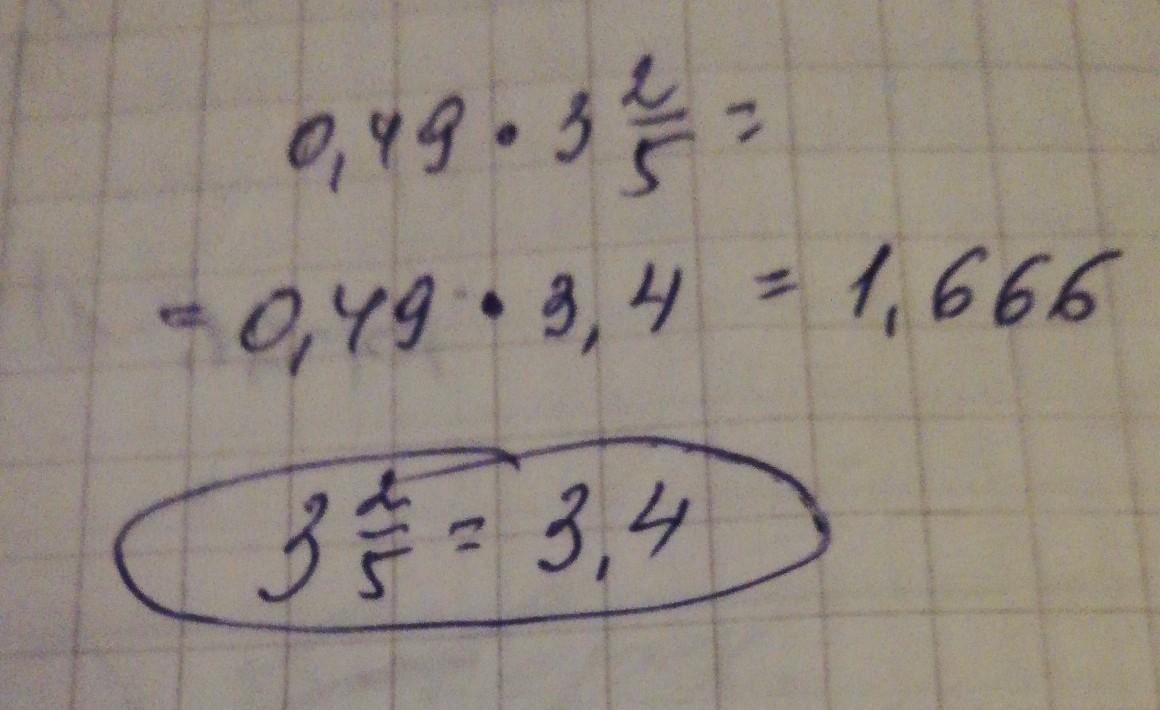 0,49 · 3 2/5 =
= 0,49 · 3,4 = 1,666
3 2/5 = 3,4